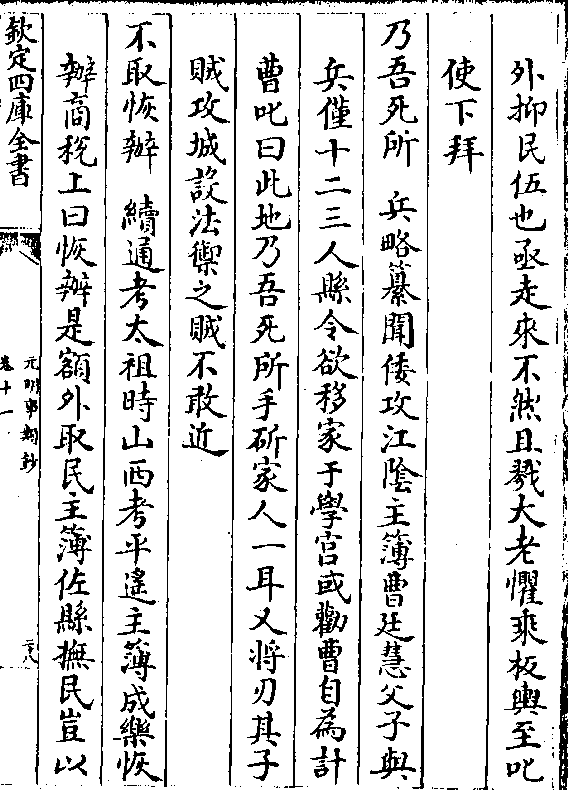 外抑民伍也亟走來不然且戮大老懼乘板輿至叱
使下拜
乃吾死所 兵略纂聞倭攻江陰主簿曹廷慧父子與
兵僅十二三人縣令欲移家于學宮或勸曹自為計
曹叱曰此地乃吾死所手斫家人一耳又將刃其子
賊攻城設法禦之賊不敢近
不取恢辦 續通考太祖時山西考平遙主簿成樂恢
辦商稅上曰恢辦是額外取民主簿佐縣撫民豈以
欽定四庫全書
元明事類鈔
卷十一
二八